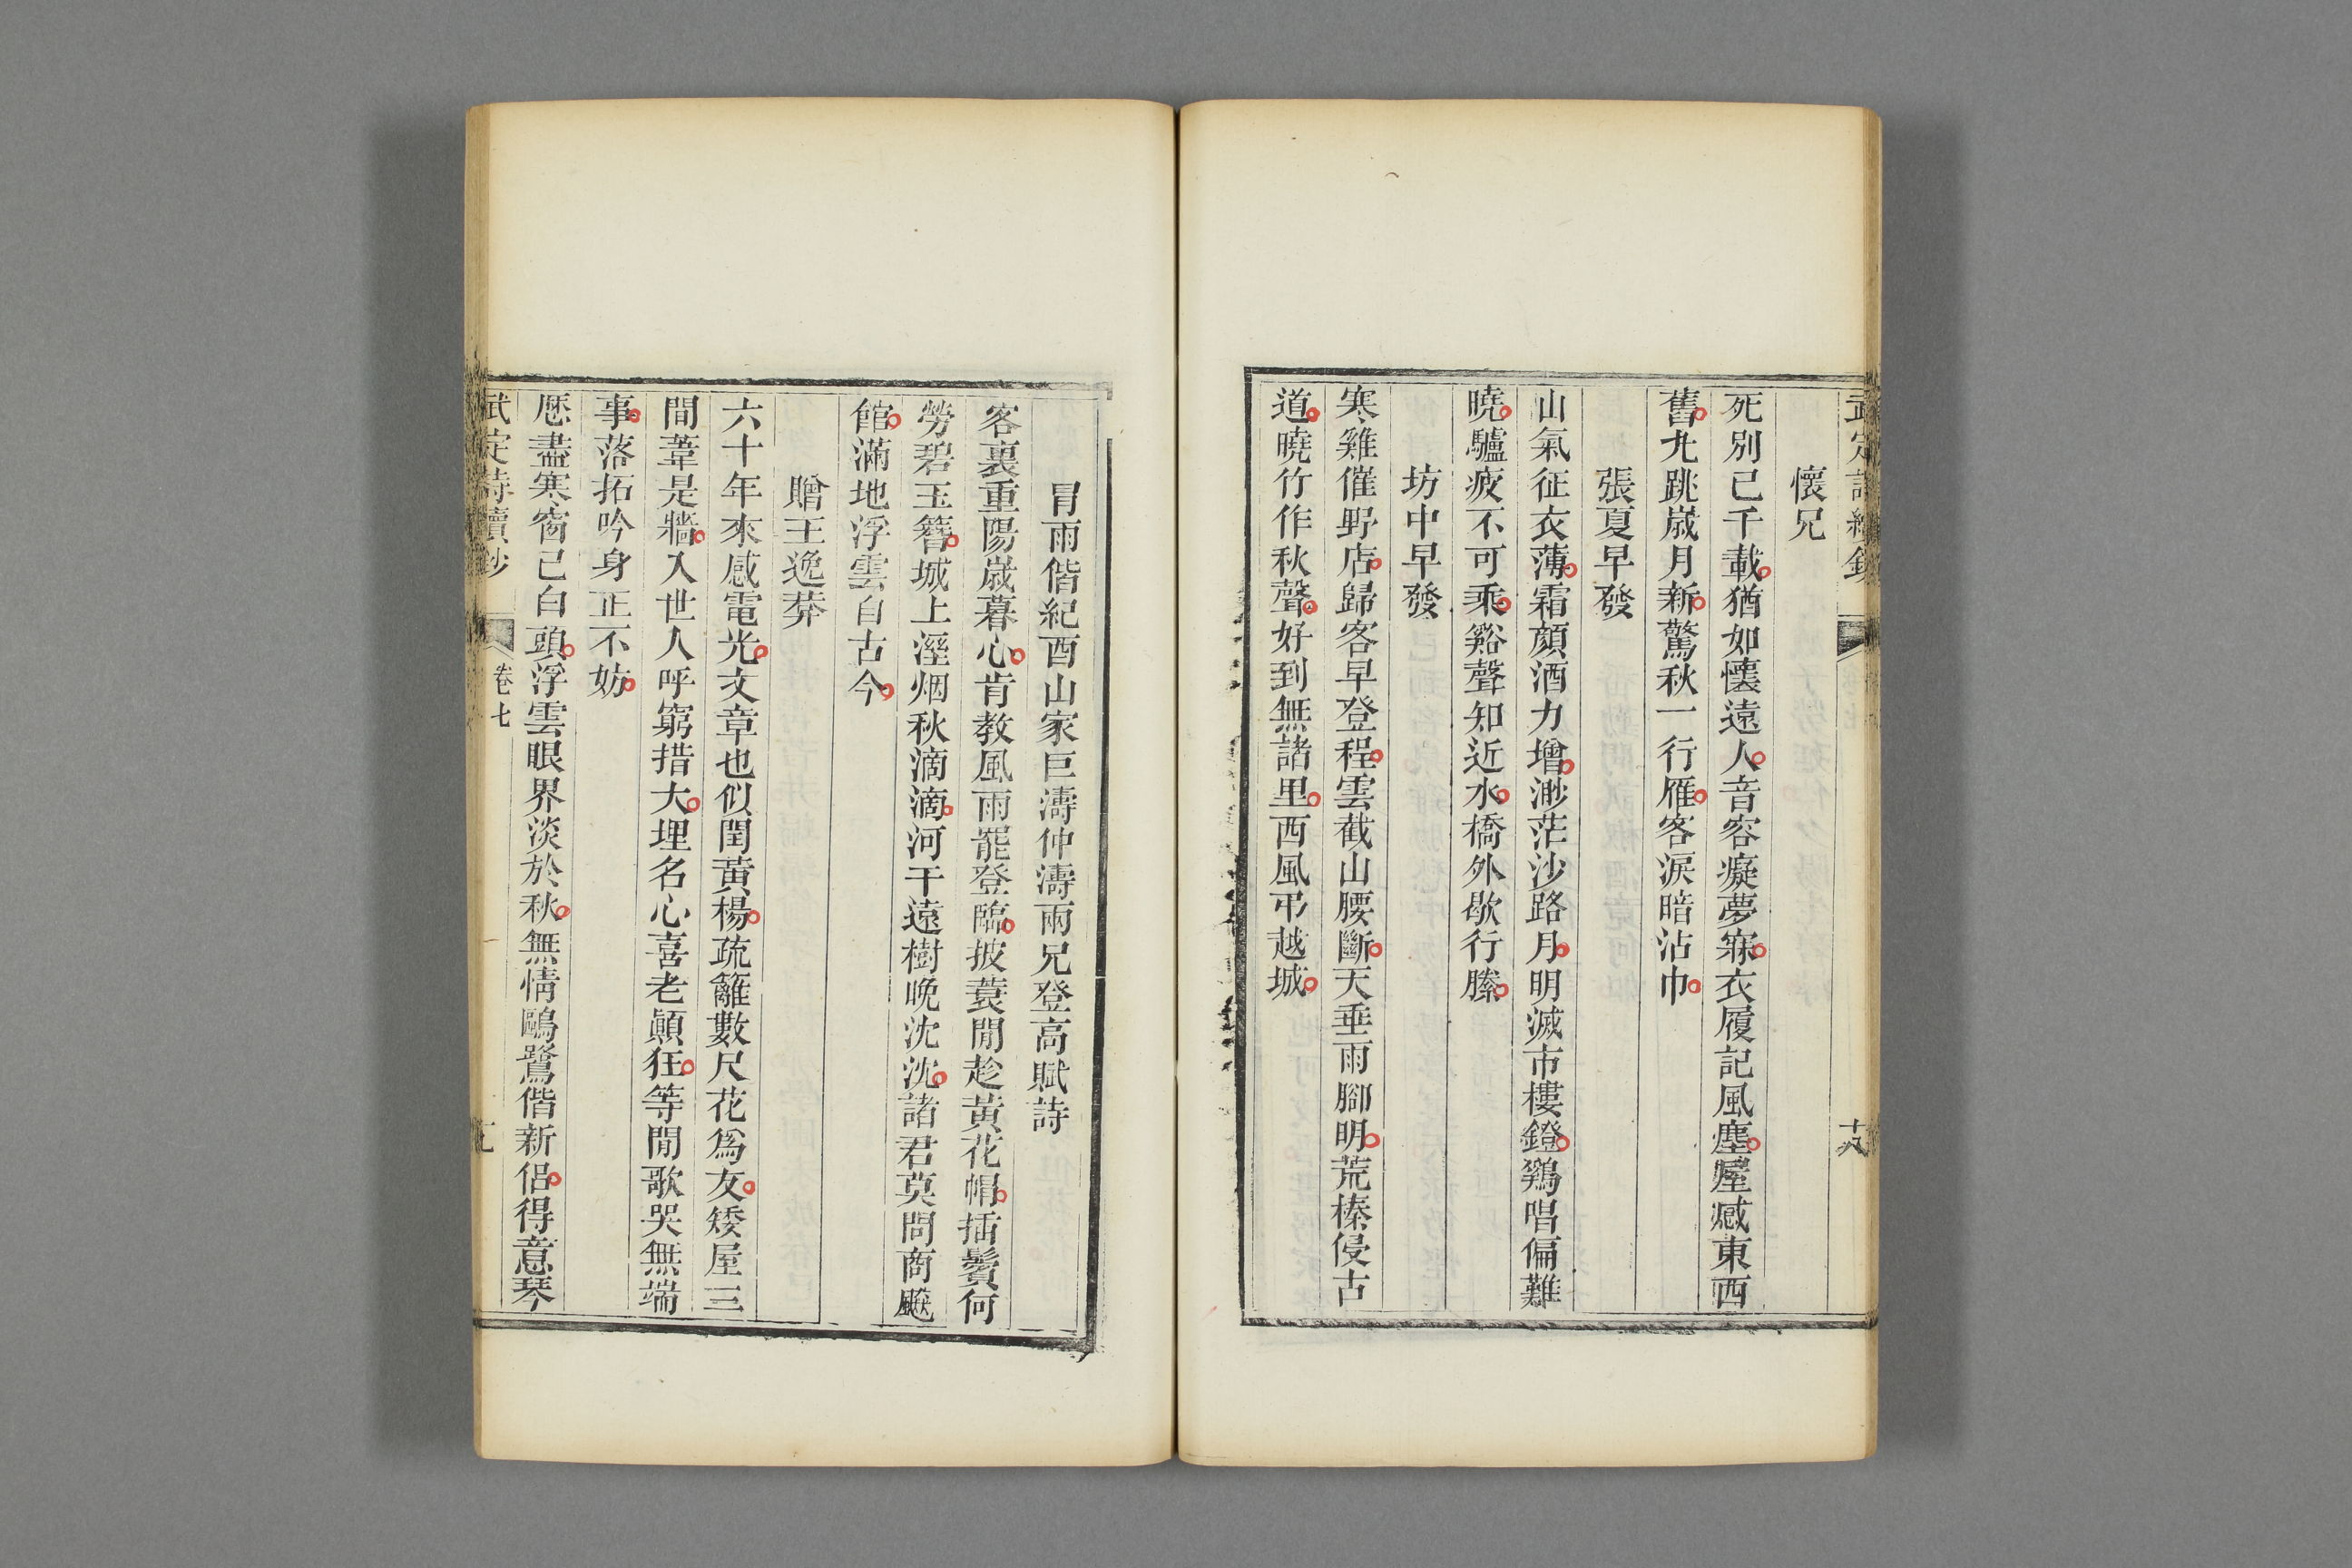 懷兄
死別已千載猶如懷遠人音容癡夢寐衣履記風塵屋臧東西
舊丸跳歲月新驚秋一行雁客淚暗沾巾
張夏早發
山氣征衣薄霜顏酒力增渺茫沙路月明滅市樓鐙鷄唱偏難
曉驢疲不可乘谿聲知近水橋外歇行縢
坊中早發
寒雞催野店歸客早登程雲截山腰斷天垂雨腳明荒榛侵古
道曉竹作秋聲好到無諸里西風弔越城
十八
冒雨偕紀酉山家巨濤仲濤兩兄登高賦詩
客裏重陽歲暮心肯教風雨罷登臨披蓑閒趁黃花帽插鬢何
勞碧玉簪城上溼烟秋滴滴河干遠樹晚沈沈諸君莫問商飈
館滿地浮雲自古今
贈王逸莽
六十年來感電光文章也似閏黃楊疏籬數尺花爲友矮屋三
間葦是牆入世人呼窮措大埋名心喜老顚狂等閒歌哭無端
事落拓吟身正不妨
歷盡寒窗已白頭浮雲眼界淡於秋無情鷗鷺偕新侶得意琴
武定詩續鈔 卷七